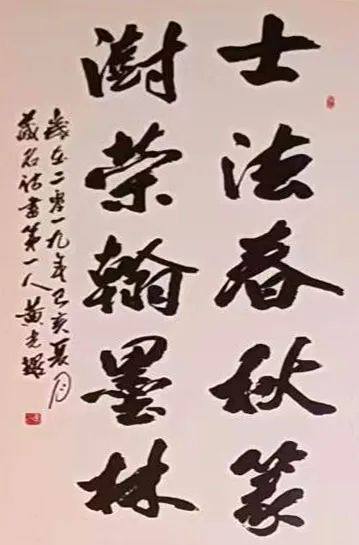 士法春秋篆
澍荣翰墨林
岁在二零一九年己亥夏月
藏名诗书第一人黄光耀